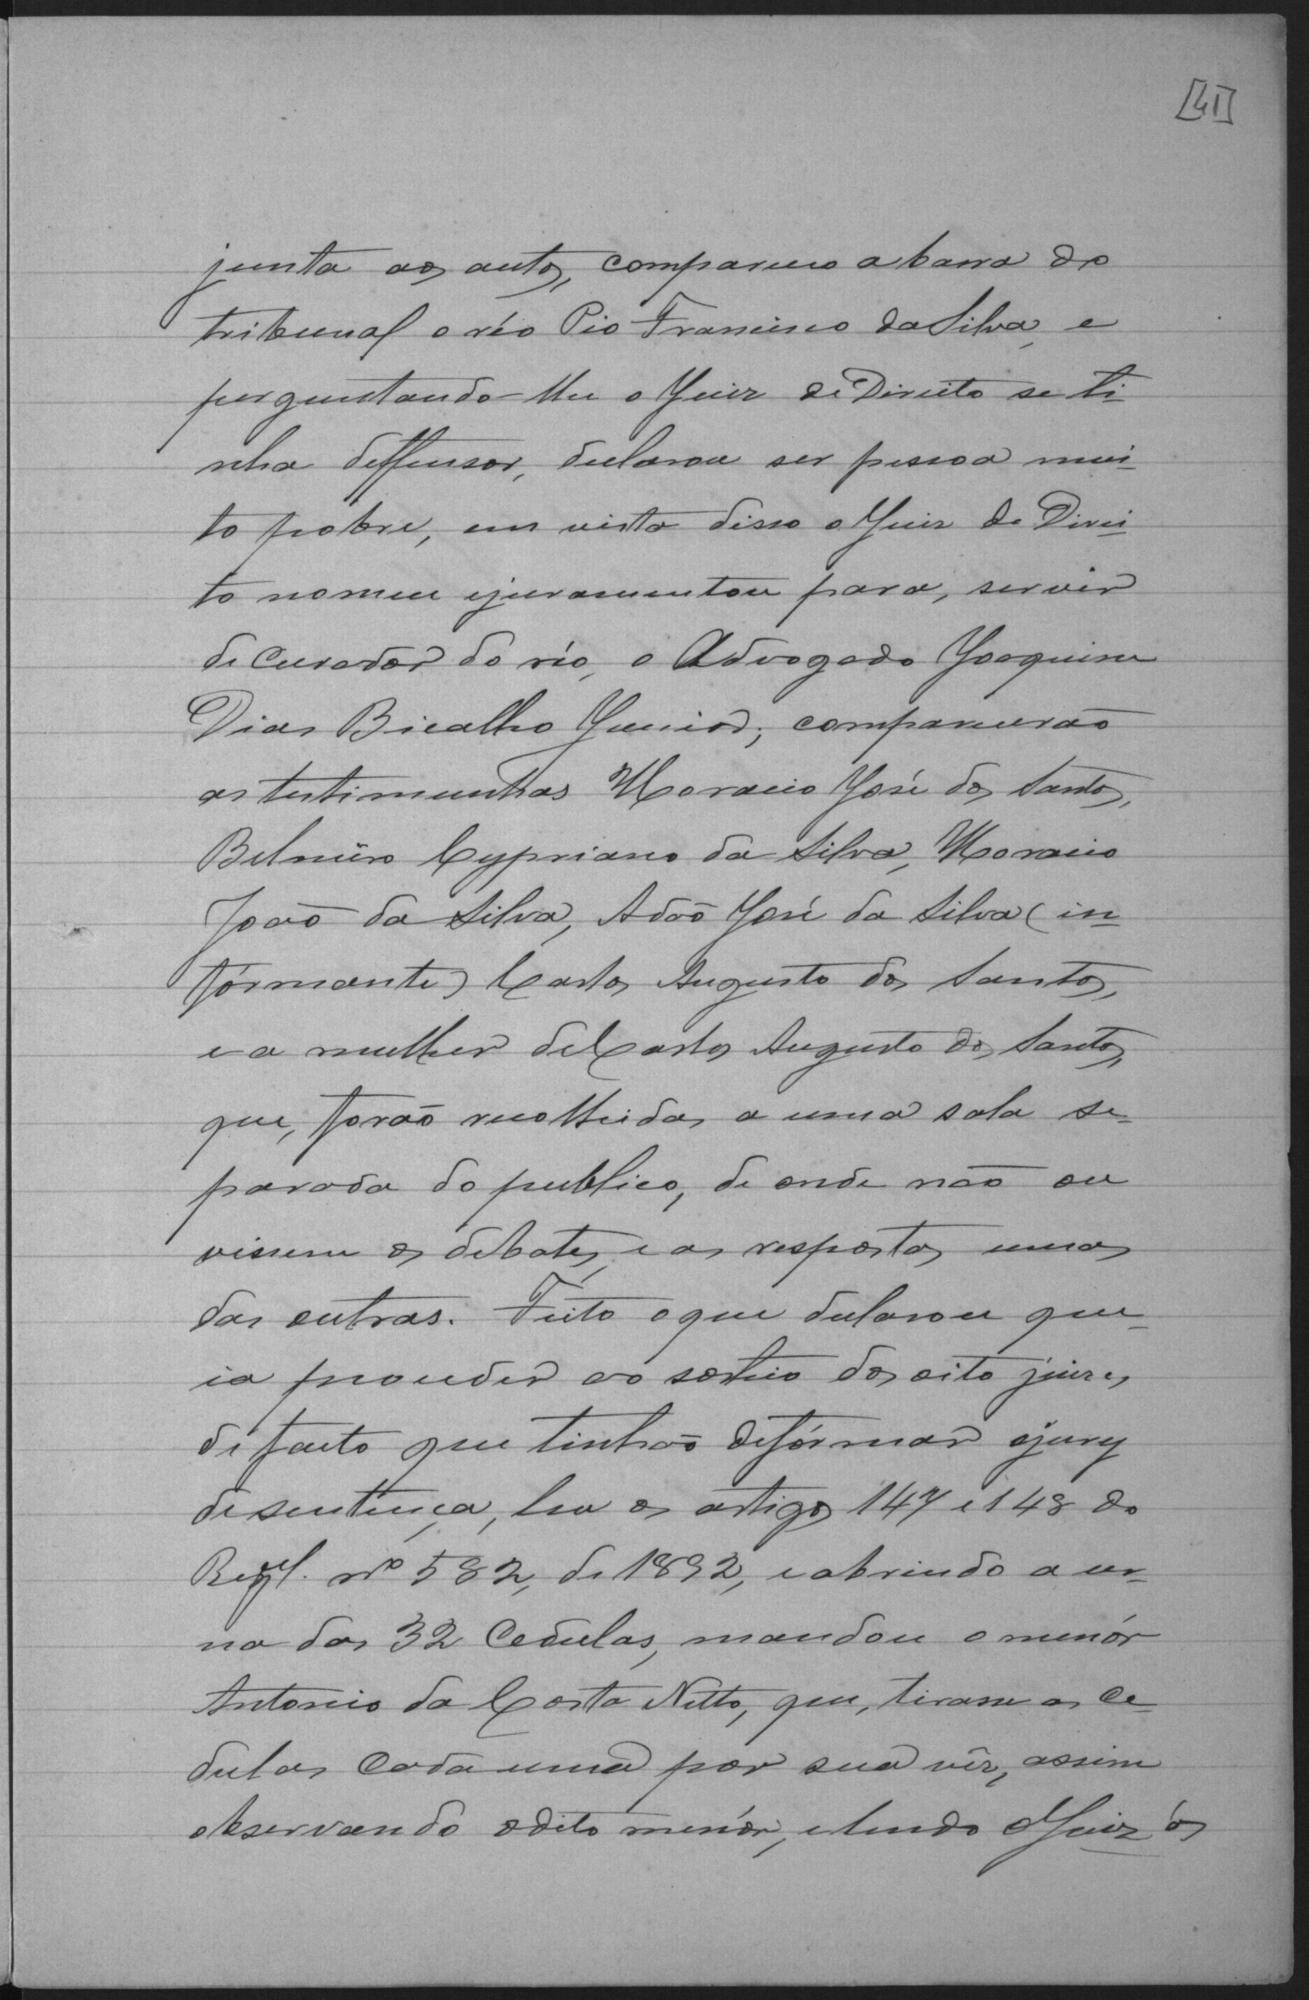 [41]
junta aos autos, compareceo a barra do
tribunal o réo Pio Francisco da Silva, e
perguntando-lhe o Juiz de Direito se ti-
nha deffensor, declarou ser pessoa mui-
to pobre, em vista disso o Juiz de Direi-
to nomeu e juramentou para, servir
de Curador do réo, o Advogado Joaquim
Dias Bicalho Junior; comparecerão
as testimunhas Horacio José dos Santos,
Belmiro Cypriano da Silva, Horacio
João da Silva, Adão José da Silva (in-
formante) Carlos Augusto dos Santos,
e a mulher de Carlos Augusto dos Santos,
que, forão recolhidas a uma sala se-
parada do publico, de onde não ou
vissem os debates, e as respostas umas
das outras. Feito o que declarou que
ia proceder ao sorteio dos oito juizes
de facto que tinhão de fórmar o jury
de sentença, leu os artigos 147 e 148 do
Regul. nº 582, de 1892, e abrindo a ur-
na das 32 Cedulas, mandou o menór
Antonio da Costa Netto, que, tirasse as Ce-
dulas Cada uma por sua vêz, assim
observando o dito menór, e lendo o Juiz ós